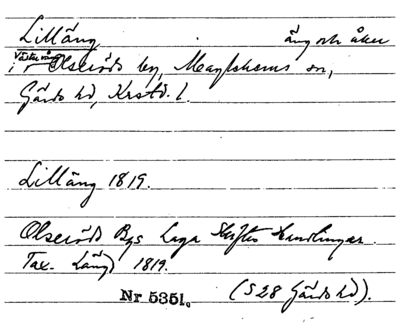 Lilläng äng och åker
i Västervång Olseröds by, Maglehems sn,
Gärds hd, Krstd. l.
Lilläng 1819.
Olseröds Bys Laga Skiftes Handlingar
Tax. Läng) 1819.
Nr 5351. (S 28 Gärds hd).